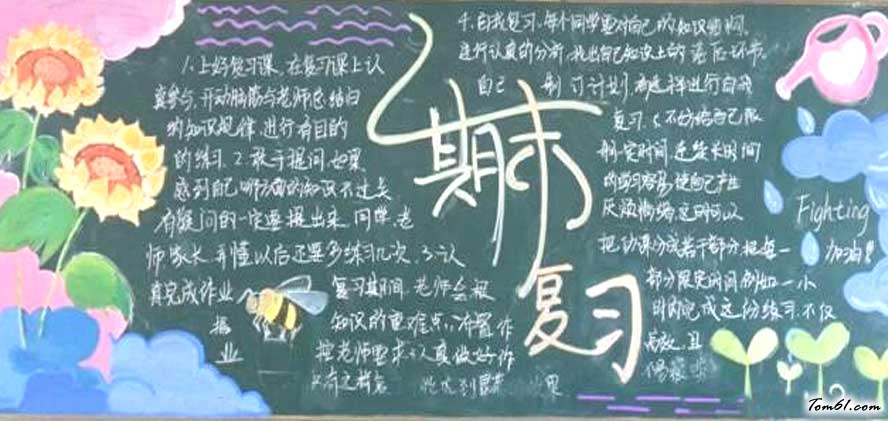 期末
复习
1.上好复习课,在复习课上认
真参与,开动脑筋与老师总结归
的知识规律,进行有目的
的练习.2.敢于提问,如果
感到自己哪方面的知识不过关
有疑问的一定要提出来,同学,老
师家长,弄懂以后还要多练习几次.3.认
真完成作业 复习期间,老师会根
据 知识的重难点,布置作
业 按老师要求认真做好作
只有这样
4.自我复习,每个同学要对自己的知识
进行认真的分析,找出自己知识上的薄弱环节.
自己 制订计划,有选择进行自我
复习.5.不妨给自己限
制定时间.连续长时间
的学习容易使自己产生
厌烦情绪,这时可以
把功课分成若干部分,把每一
部分限定时间,例如一小
时内完成这份练习,不仅
高效,且
Fighting
加油!!
Tom61.com